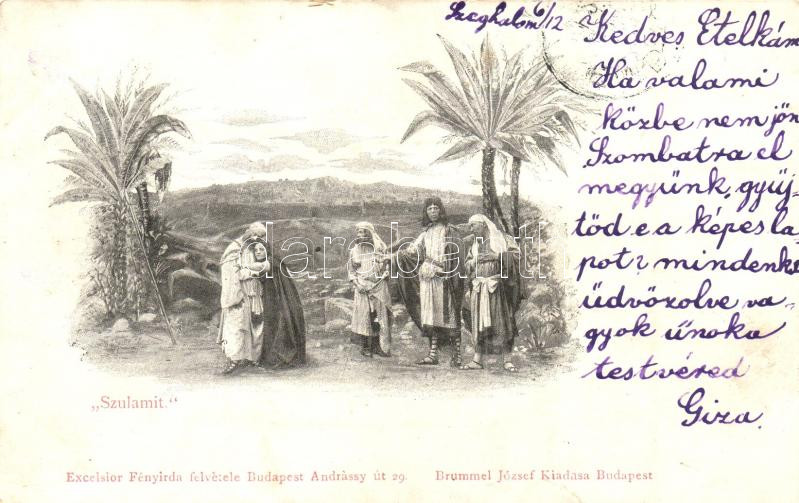 Szeghalom 6/12
Kedves Etelkám
Ha valami
közbe nem jön
Szombatra el
megyünk, gyüj-
töd e a képes la
pot? mindenke
üdvözolve va-
gyok únoka
testvéred
Giza.
darabanth
„Szulamit."
Excelsior Fényirda felvétele Budapest Andrássy út 29.
Brummel József Kiadása Budapest